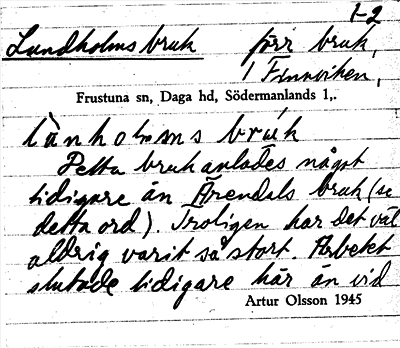 1-2
Lundholms bruk förr bruk,
i Finnviken,
Frustuna sn, Daga hd, Södermanlands l,.
lànholms brúk
Detta bruk anlades något
tidigare än Ärendals bruk (se
detta ord). Troligen har det väl
aldrig varit så stort. Arbetet
slutade tidigare här än vid
Artur Olsson 1945